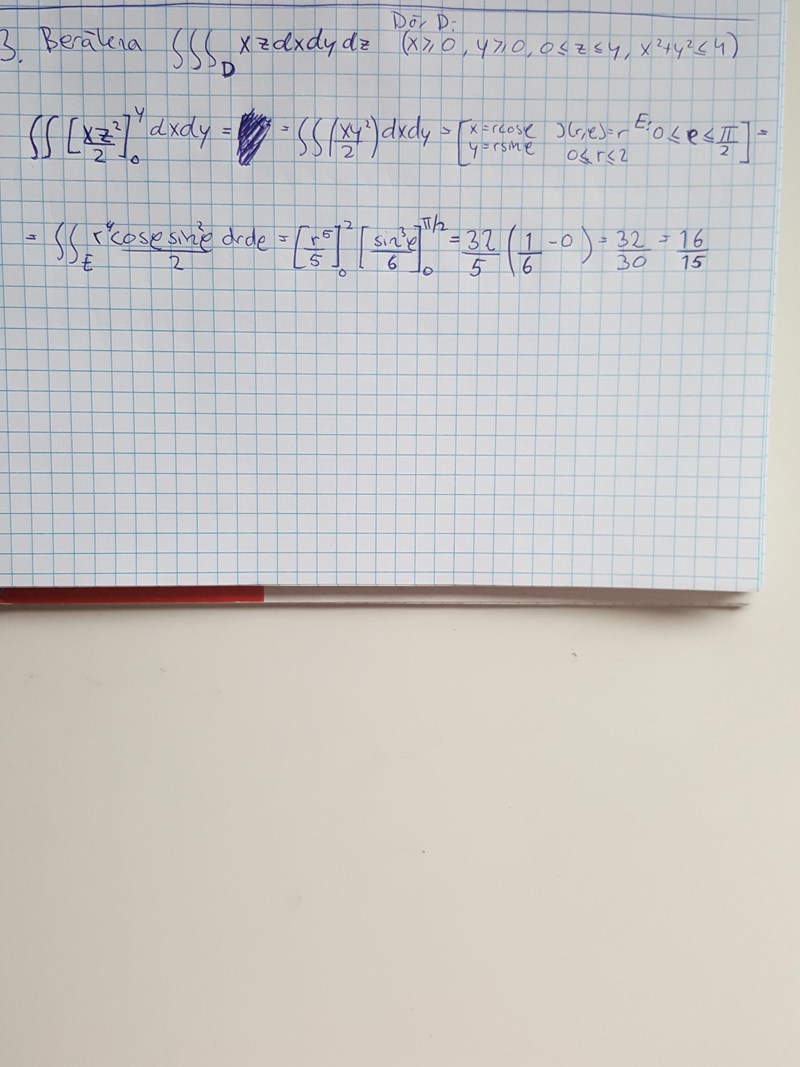 Där D:
3. Beräkna ∫∫∫_D xzdxdydz (x≥0, y≥0, 0≤z≤y, x²+y²≤4)
∫∫[xz²/2]₀^y dxdy = = ∫∫(xy²/2)dxdy = [x=rcosθ J(r,θ)=r E: 0≤θ≤π/2
y=rsinθ 0≤r≤2] =
= ∫∫_E r⁴cosθsin²θ/2 drdθ = [r⁵/5]₀² [sin³θ/6]₀^π/2 = 32/5 (1/6 - 0) = 32/30 = 16/15